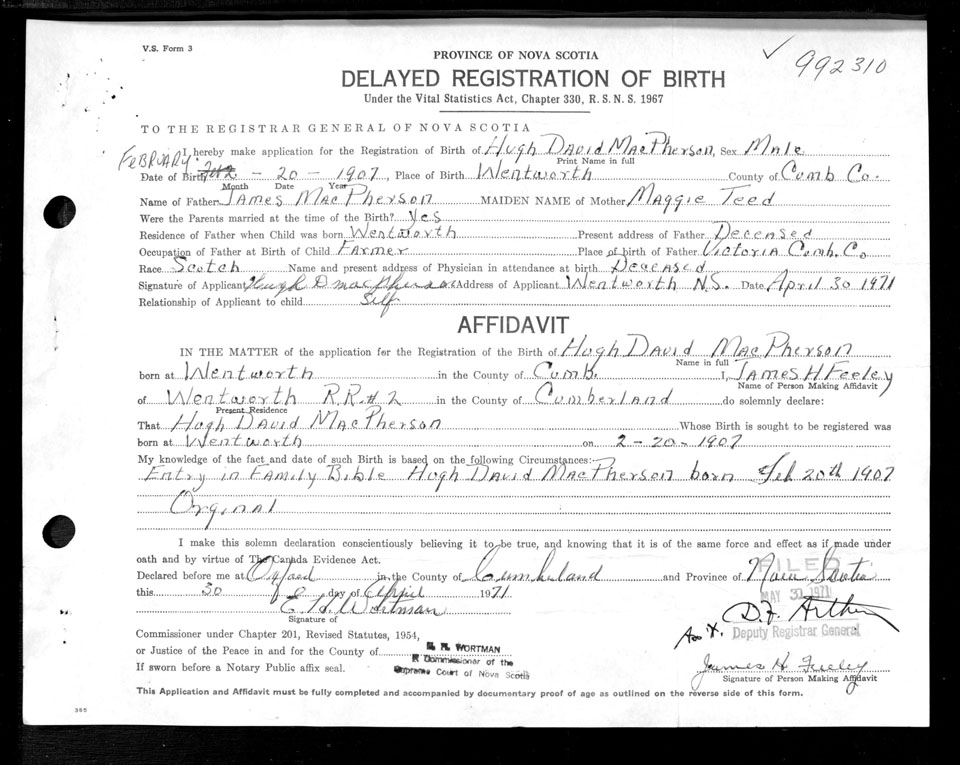 V.S. Form 3
PROVINCE OF NOVA SCOTIA
992310
DELAYED REGISTRATION OF BIRTH
Under the Vital Statistics Act, Chapter 330, R.S.N.S. 1967
TO THE REGISTRAR GENERAL OF NOVA SCOTIA
I hereby make application for the Registration of Birth of Hugh David MacPherson, Sex Male
Print Name in full
February
Date of Birth - 20 - 1907, Place of Birth Wentworth County of Cumb Co.
Month Date Year
Name of Father James MacPherson MAIDEN NAME of Mother Maggie Teed
Were the Parents married at the time of the Birth? Yes
Residence of Father when Child was born Wentworth Present address of Father Deceased
Occupation of Father at Birth of Child Farmer Place of birth of Father Victoria Cumb. Co
Race Scotch Name and present address of Physician in attendance at birth Deceased
Signature of Applicant Hugh D MacPherson Address of Applicant Wentworth N.S. Date April 30 1971
Relationship of Applicant to child Self
AFFIDAVIT
IN THE MATTER of the application for the Registration of the Birth of Hugh David MacPherson
Name in full
born at Wentworth in the County of Cumb. I, James H Feeley
Name of Person Making Affidavit
of Wentworth R.R.# 2 in the County of Cumberland do solemnly declare:
Present Residence
That Hugh David MacPherson Whose Birth is sought to be registered was
born at Wentworth on 2-20-1907
My knowledge of the fact and date of such Birth is based on the following Circumstances:
Entry in Family Bible Hugh David MacPherson born Feb 20th 1907
Orginal
I make this solemn declaration conscientiously believing it to be true, and knowing that it is of the same force and effect as if made under
oath and by virtue of The Canada Evidence Act.
FILED
Declared before me at Oxford in the County of Cumberland and Province of Nova Scotia
this 30 day of April 1971
MAY 30 1971
E. H. Wortman
Signature of
D.F. Arthur
Deputy Registrar General
Commissioner under Chapter 201, Revised Statutes, 1954,
or Justice of the Peace in and for the County of
WORTMAN
A Commissioner of the
Supreme Court of Nova Scotia
If sworn before a Notary Public affix seal.
James H Feeley
Signature of Person Making Affidavit
This Application and Affidavit must be fully completed and accompanied by documentary proof of age as outlined on the reverse side of this form.
365